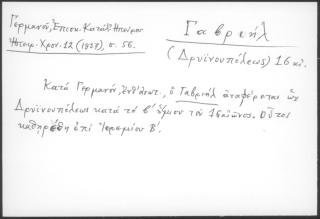 Γερμανοῦ, Ἐπισκ. Κατάλ. Ἠπείρου
Ἠπειρ. Χρον. 12 (1937), σ. 56.
Γαβριήλ
(Δρυϊνουπόλεως) 16 αἰ.
Κατὰ Γερμανόν, ἔνθ' ἀνωτ., ὁ Γαβριήλ ἀναφέρεται ὡς
Δρυϊνουπόλεως κατὰ τὸ β' ἥμισυ τοῦ 16 αἰῶνος. Οὗτος
καθῃρέθη ἐπὶ Ἱερεμίου Β'.